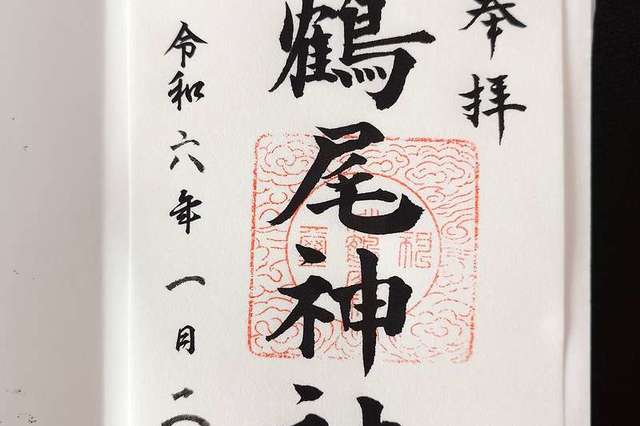 奉拝
鶴尾神社
令和六年一月二